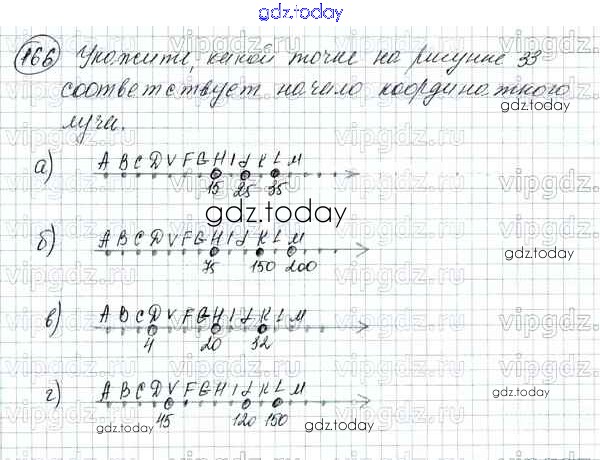 gdz.today
166 Укажите, какой точке на рисунке 33
соответствует начало координатного
луча.
gdz.today
а) A B C D V F G H I J K L M
15 25 35
gdz.today
б) A B C D V F G H I J K L M
75 150 200
gdz.today
в) A B C D V F G H I J K L M
4 20 32
г) A B C D V F G H I J K L M
45 120 150
gdz.today
gdz.today
gdz.today